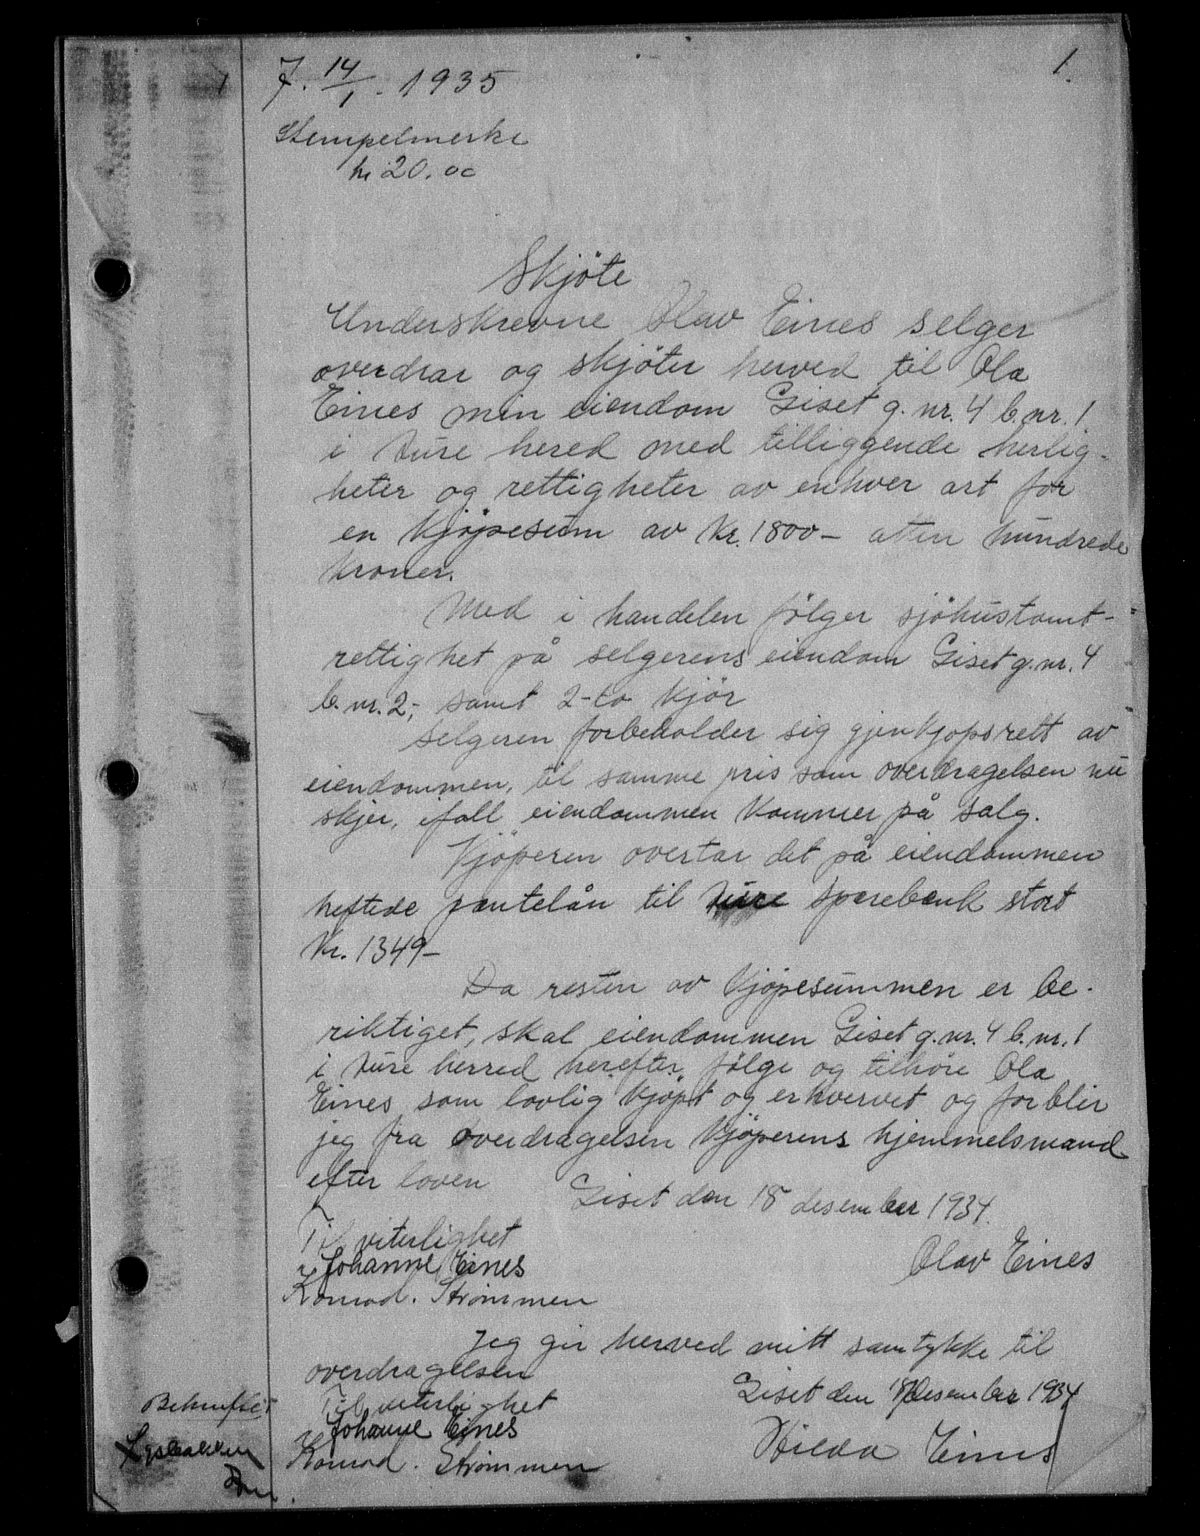 1.
7. 14/1. 1935
Stempelmerke
kr 20.00
Skjöte
Underskrevne Olav Eines selger
overdrar og skjöter herved til Ola
Eines min eiendom Giset g. nr. 4 b. nr. 1
i Ture hered med tilliggende herlig-
heter og rettigheter av enhver art for
en kjöpesum av kr. 1800- atten hundrede
kroner.
Med i handelen fölger sjöhustomt-
rettighet på selgerens eiendom Giset g. nr. 4
b. nr. 2,- samt 2-to kjör
Selgeren forbeholder sig gjenkjöpsrett av
eiendommen, til samme pris som overdragelsen nu
skjer, ifall eiendommen kommer på salg.
Kjöperen overtar det på eiendommen
heftede pantelån til Ture sparebank stort
Kr. 1349-
Da resten av kjöpesummen er be-
riktiget, skal eiendommen Giset g. nr. 4 b. nr. 1
i Ture herred herefter fölge og tilhöre Ola
Eines som lovlig kjöpt og erhvervet og forblir
jeg fra overdragelsen kjöperens hjemmelsmand
efter loven
Giset den 18 desember 1934.
Til viterlighet
Johanne Eines
Olav Eines
Konrad. Strømmen
Jeg gir herved mitt samtykke til
overdragelsen
Giset den 18 desember 1934
Til viterlighet
Johanne Eines
Hilda Eines
Konrad. Strømmen
Bekreftet